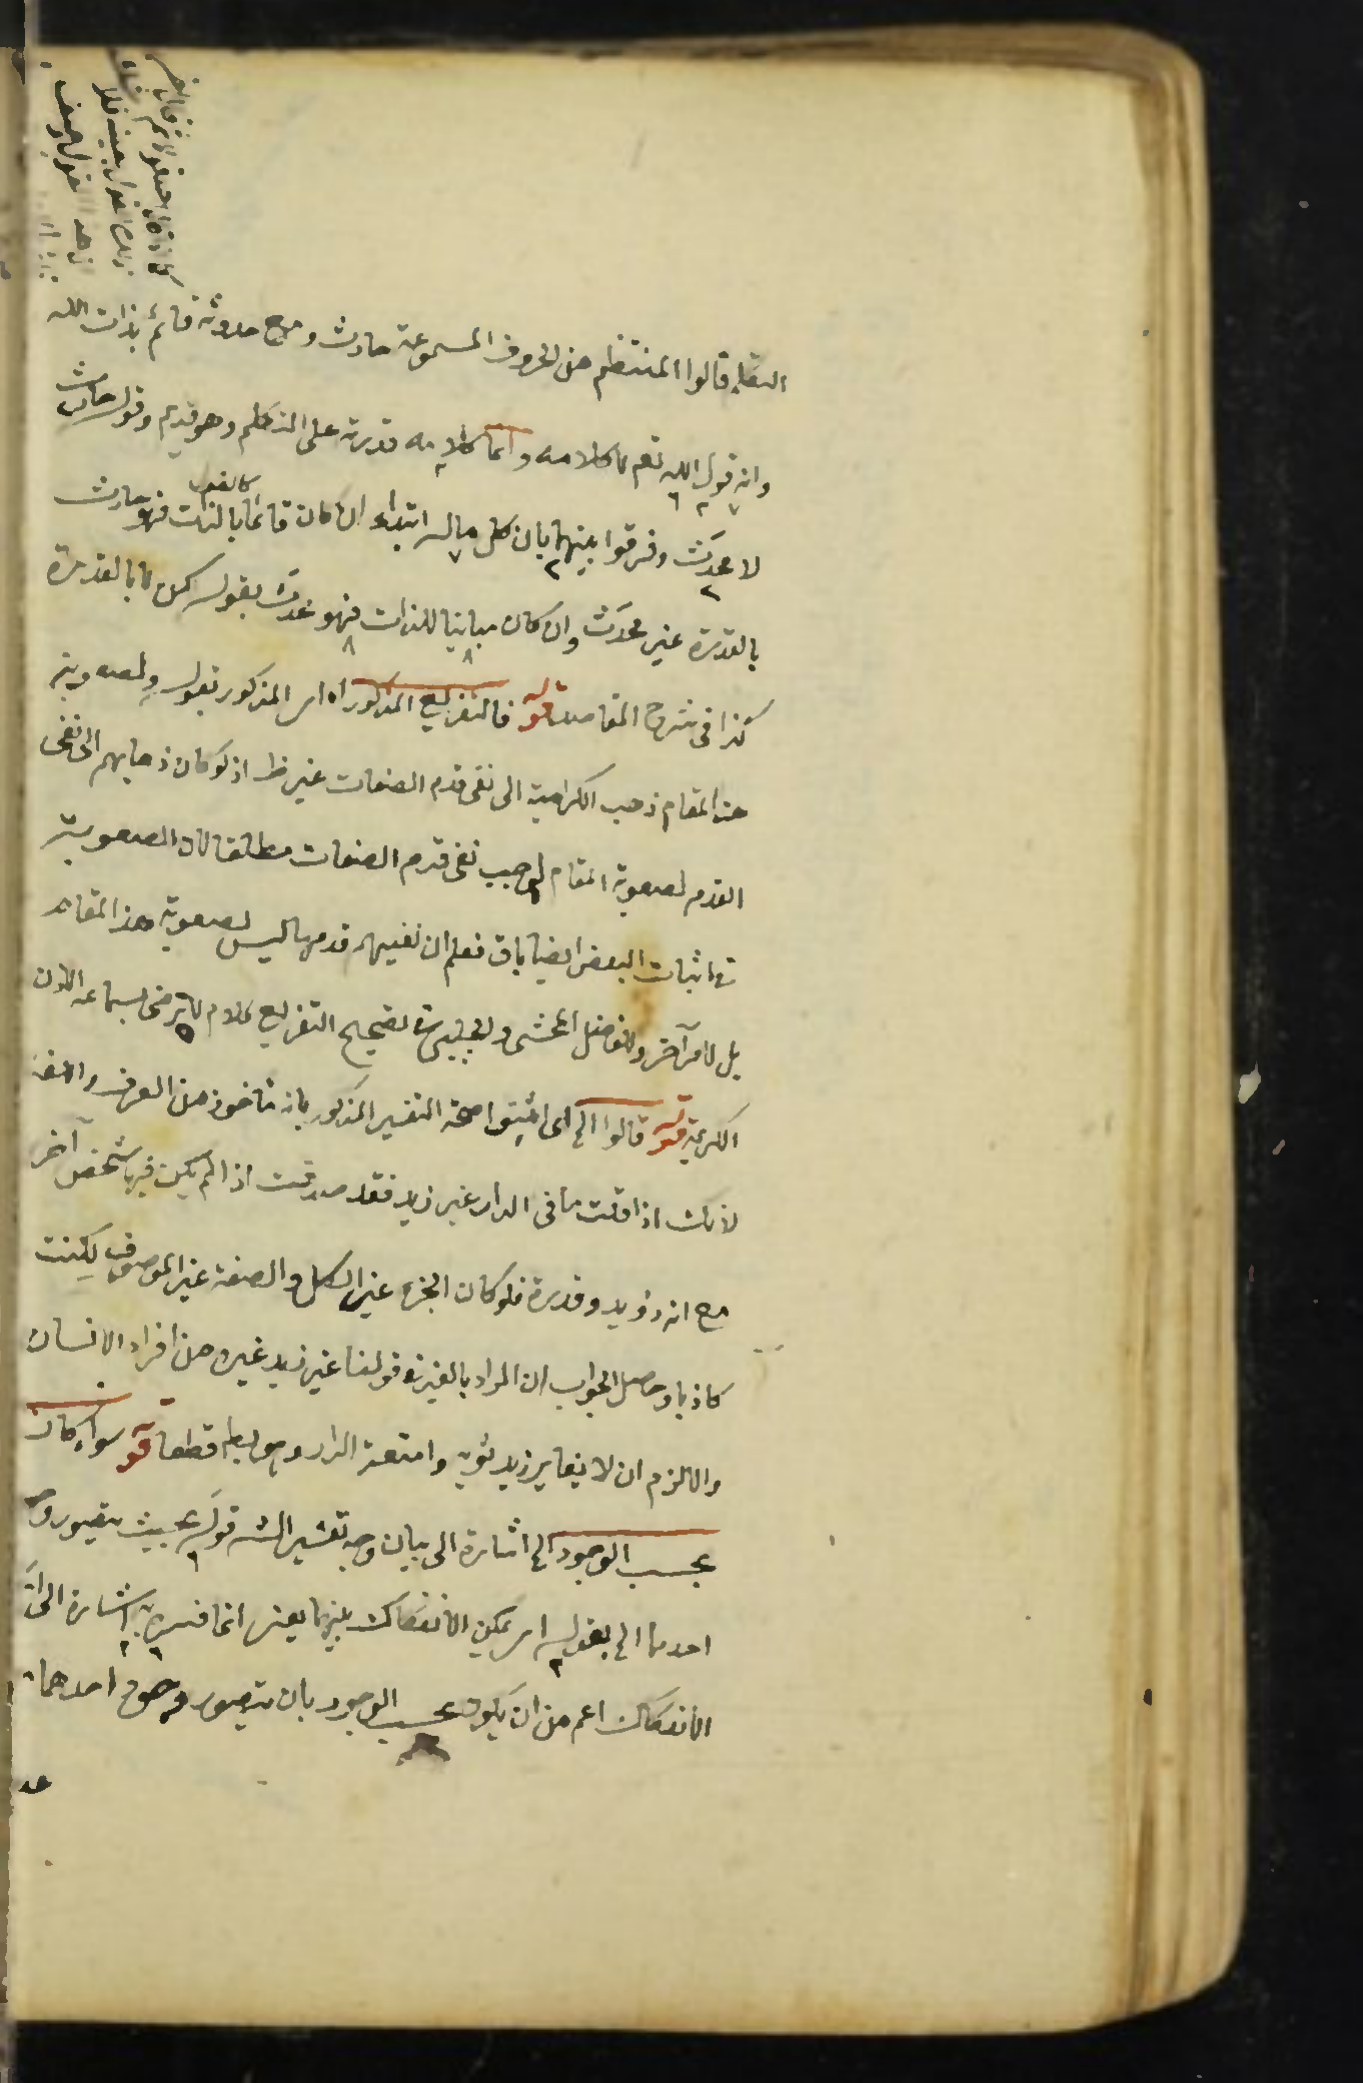 قالوا المنتظم من الحروف المسموعة حادث ومع حدوثه قائم بذات الله
وانه قول الله تعم لا كلامه وانما كلامه قدرته على التكلم وهو قديم وقوله حادث
لا محدث وفرقوا بينهما بان كل ماله ابتداء ان كان قائما بالذات فهو حادث
بالقدرة غير محدث وان كان مباينا للذات فهو محدث بقوله كن لا بالقدرة
كذا فى شرح المقاصد قوله فالتفريع المذكور اه اى المذكور بقوله ولصعوبة
هذا المقام ذهب الكرامية الى نفى قدم الصفات غير ظ اذ لو كان ذهابهم الى نفى
القدم لصعوبة المقام لوجب نفى قدم الصفات مطلقا لان الصعوبة
فى اثبات البعض ايضا باق فعلم ان نفيهم قدمها ليس لصعوبة هذا المقام
بل لامر آخر وللفاضل المحشى فى تصحيح التفريع كلام لا ترضى بسماعه الاذن
الكريمة قوله قالوا الخ اى اثبتوا صحة التفسير المذكور بانه مأخوذ من العرف واللغة
لانك اذا قلت ما فى الدار غير زيد فقد صدقت اذا لم يكن فيها شخص آخر
مع انه ذو يد وقدرة فلو كان الجزء غير الكل والصفة غير الموصوف لكنت
كاذبا وحاصل الجواب ان المراد بالغير فى قولنا غير زيد غيره من افراد الانسان
والا لزم ان لا يغاير زيد ثوبه وامتعة الدار وهو بط قطعا قوله سواء كان
بحسب الوجود الخ اشارة الى بيان وجه تفسير الش قوله بحيث يتصور وجود
احدهما الخ بقوله اى يمكن الانفكاك بينهما يعنى انما فسره به اشارة الى ان
الانفكاك اعم من ان يكون بحسب الوجود بان يتصور وجود احدهما